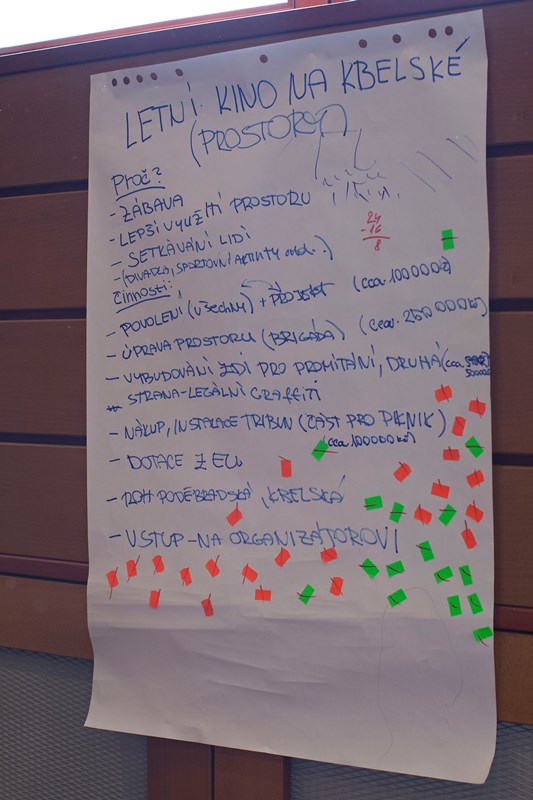 LETNÍ KINO NA KBELSKÉ
(PROSTORY)
Proč?
- ZÁBAVA
- LEPŠÍ VYUŽITÍ PROSTORU
- SETKÁVÁNÍ LIDÍ
- (DIVADLA, SPORTOVNÍ AKTIVITY
24
- 16
8
Činnosti:
- POVOLENÍ (VŠECHNY) + PROJEKT (cca. 100000kč)
- ÚPRAVA PROSTORU (BRIGÁDA) (cca. 250000kč)
- VYBUDOVÁNÍ ZDÍ PRO PROMÍTÁNÍ, DRUHÁ (cca.
STRANA-LEGÁLNÍ GRAFFITI
- NÁKUP, INSTALACE TRIBUN (ČÁST PRO PIKNIK)
(cca 100000kč)
- DOTACE Z EU
- ROH PODĚBRADSKÁ, KBELSKÁ
- VSTUP-NA ORGANIZÁTOROVI